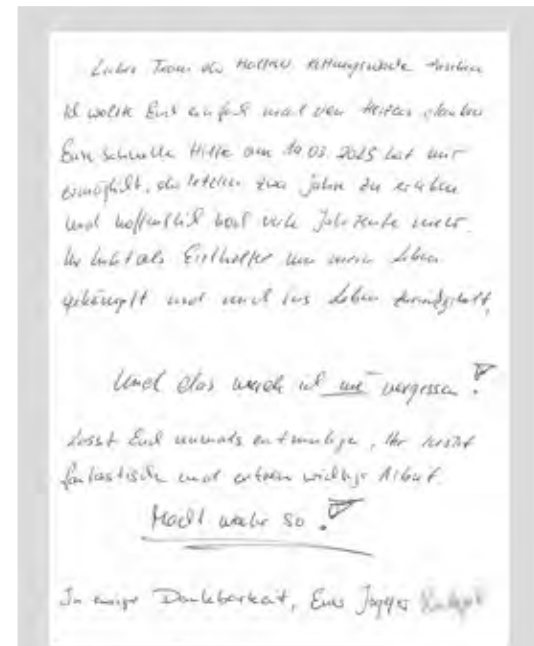 Liebes Team der Malteser Rettungswache
Ich wollte Euch einfach mal von Herzen danken
Eure schnelle Hilfe am 10.03.2025 hat mir
ermöglicht, die letzten zwei Jahre zu erleben
und hoffentlich noch viele Jahrzente mehr.
Ihr habt als Ersthelfer um mein Leben
gekämpft und mich ins Leben zurückgeholt,
Und das werde ich nie vergessen!
Lasst Euch niemals entmutigen, Ihr leistet
fantastische und extrem wichtige Arbeit.
Macht weiter so!
In ewiger Dankbarkeit, Euer